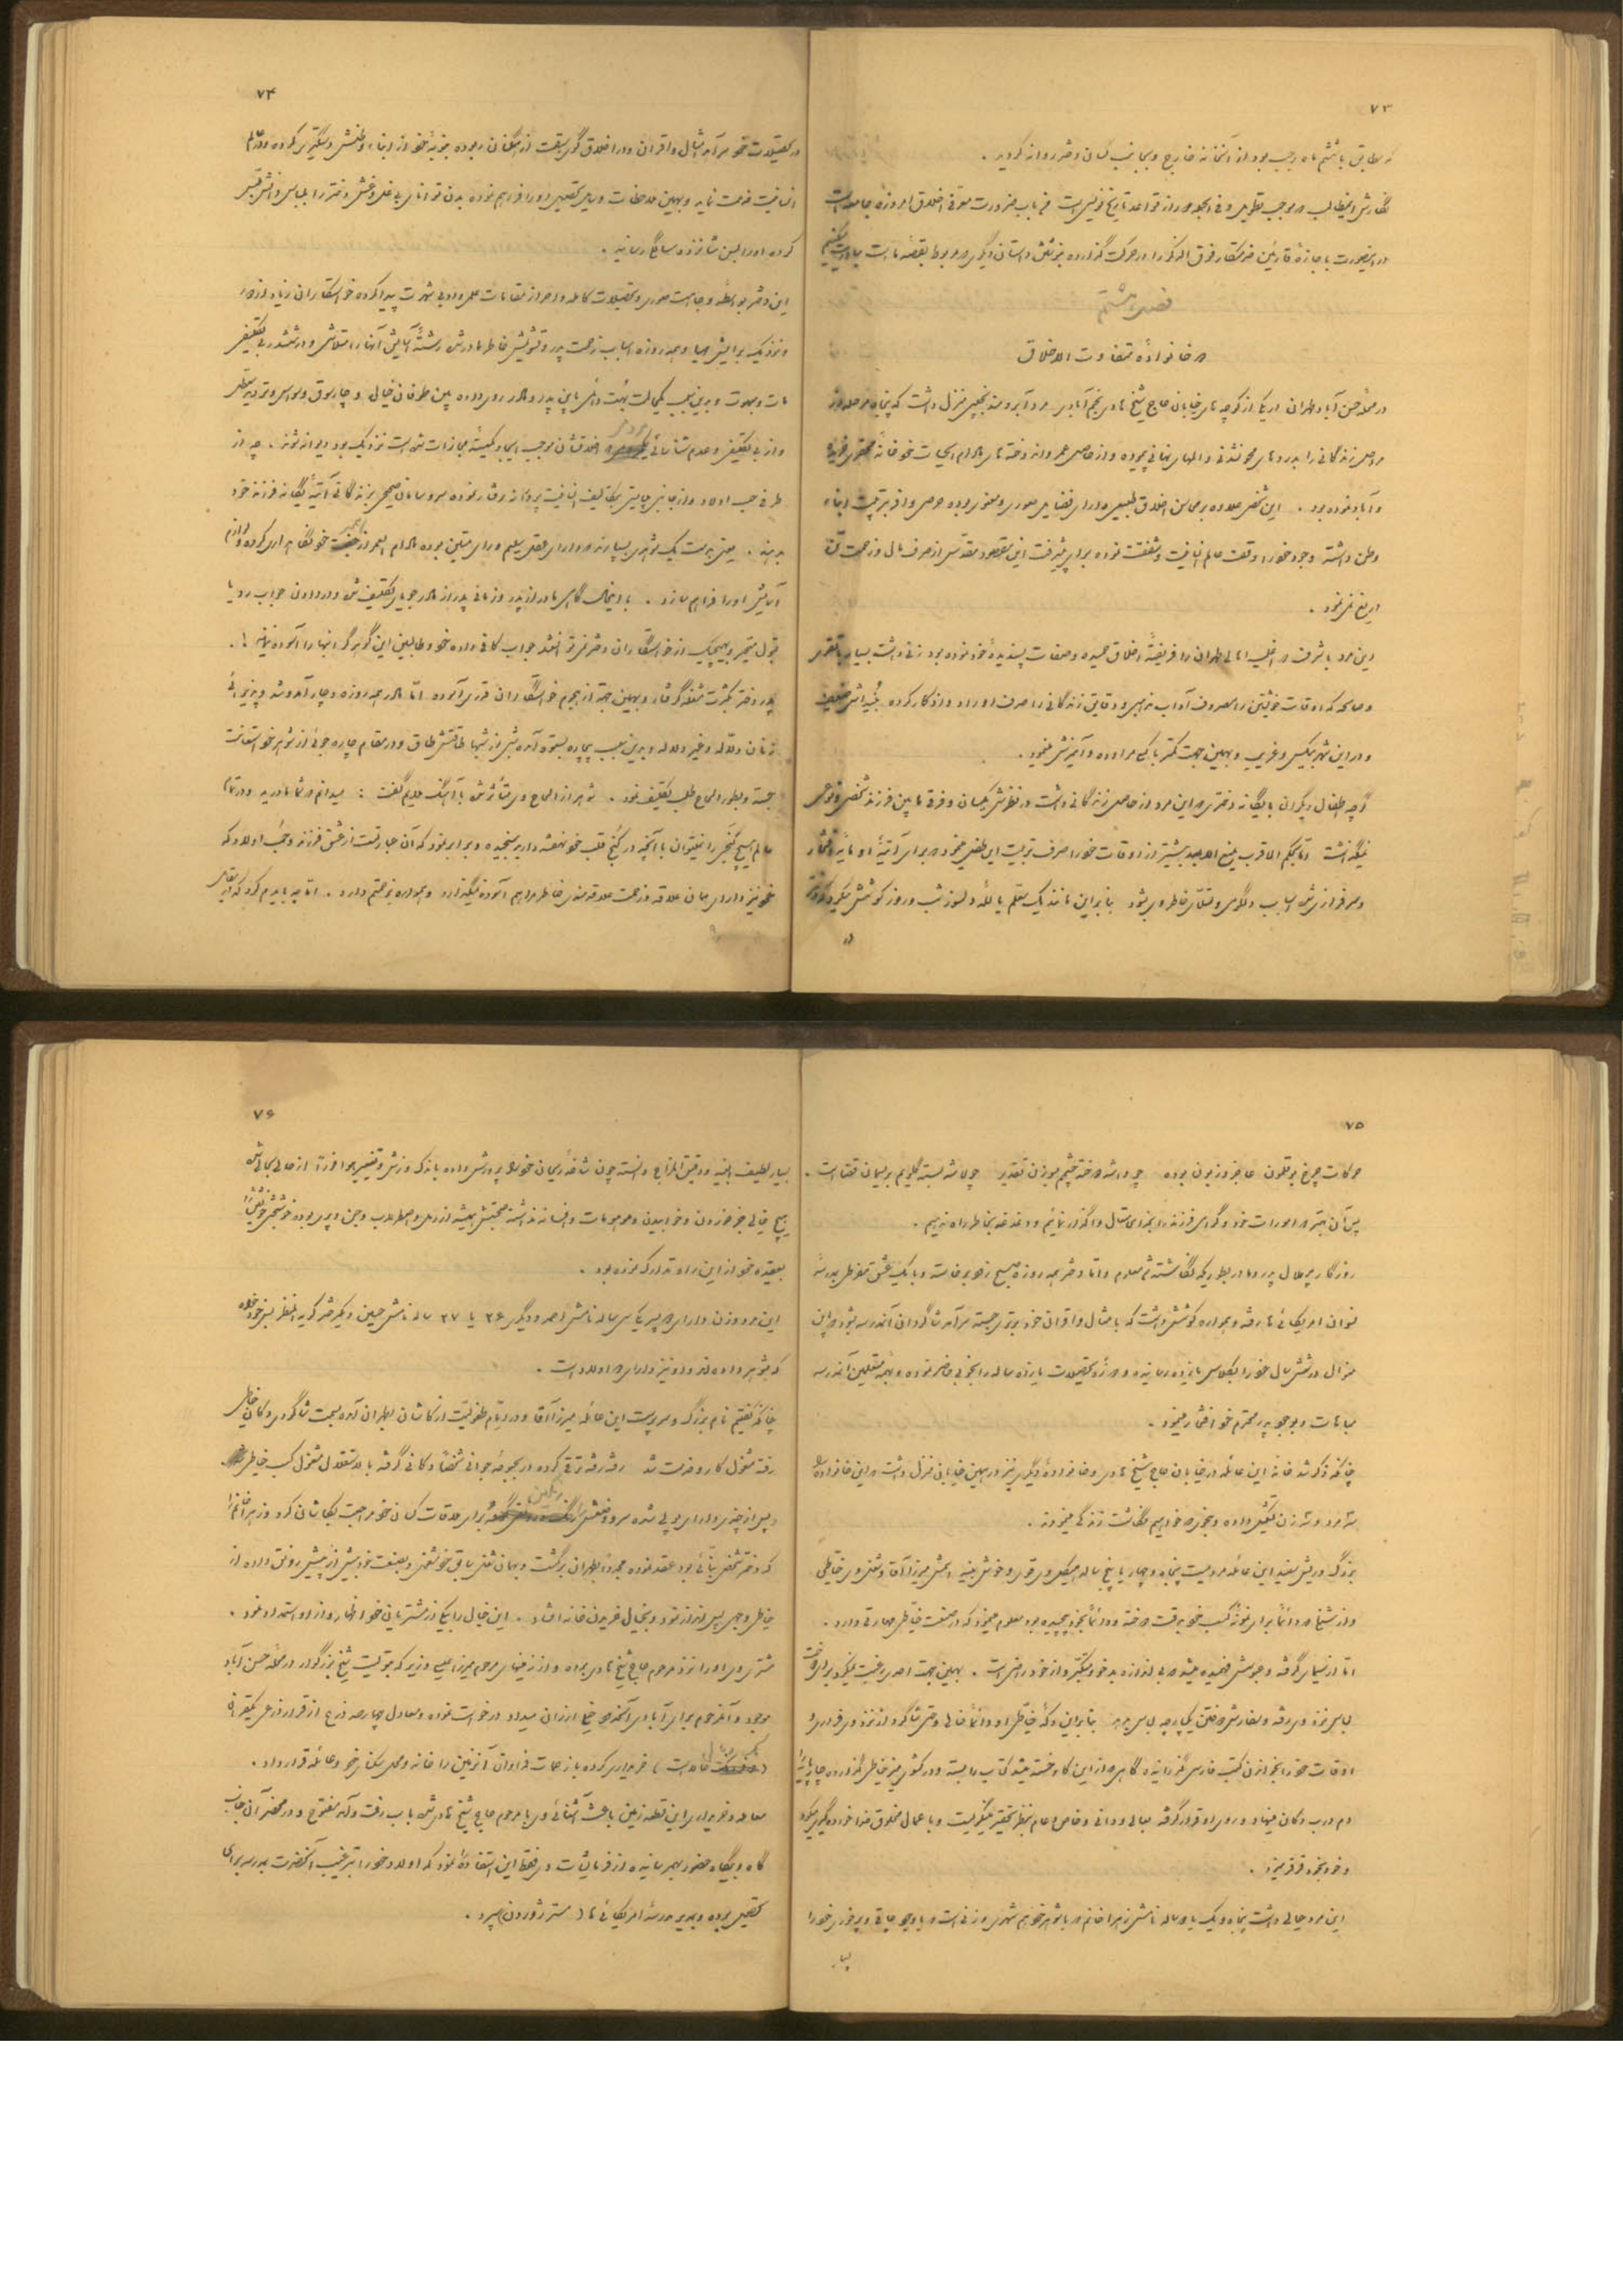 ۷۳
که مطابق با ششم ماه رجب بود از آنخانه خارج و بجانب گمان دختر روانه گردید .
نگارش اینمطالب هر موجب تطویل و فی الجمله دور از قواعد تاریخ نویسی است من باب ضرورت معرفی اخلاق امروزه جامعه است
در اینصورت با اجازهٔ قارئین متشکار فوق الذکر را در حرکت گذارده بنوشتن داستان دیگری که مربوط بقصهٔ ما است مبادرت میکنیم
فصل هشتم
دو خانوادهٔ متفاوت الاخلاق
در محلهٔ حسن آباد طهران در یکی از کوچه های خیابان حاج شیخ هادی نجم آبادی مرد آبرومند نجیبی منزل داشت که پنجاه مرحله از
مراحل زندگانی را بدردهای محو نشدنی و المهای نهانی پیموده و از حاصل عمر و اندوخته های مادام الحیات خود خانهٔ محقری خریده
و آباد نموده بود . این شخص علاوه بر محاسن اخلاق طبیعی دارای فضایل صوری و معنوی بوده حرص وافر بتربیت ابناء
وطن داشته وجود خود را وقف عالم انسانیت و شفقت نموده برای پیشرفت این مقصود مقدس از صرف مال و زحمت تن
دریغ نمی نمود .
این مرد باشرف که اغلب اهالی طهران را فریفتهٔ اخلاق حمیده و صفات پسندیدهٔ خود نموده بود زنی داشت بسیار باتقوی
و صالحه که اوقات خویشتن را مصروف آداب مذهبی و دقایق زندگانی را صرف اوراد و اذکار کرده
و در این شهر بیکس و غریب و بهمین جهت کمتر با کسی مراوده و آمیزش مینمود .
گرچه اطفال دیگران با یگانه دختری که این مرد از حاصل زندگانی داشت در نظرش یکسان و فرق مابین فرزند شخصی و نوعی
نمیگذاشت اما بحکم الاقرب یمنع الابعد بیشتر از اوقات خود را صرف تربیت این طفل مینمود که برای آتیهٔ او مایهٔ افتخار
و سرفرازی شده اسباب دلگرمی و تسلای خاطر وی بشود بنابراین مانند یک معلم با لله و دلسوز شب و روز کوشش میکرد که دختر
۷۴
در تحصیلات خود سرآمد امثال و اقران و در اخلاق گوی سبقت از همگنان ربوده بنوبهٔ خود از ابناء وطنش دستگیری کرده و بعالم
انسانیت خدمت نماید و بهمین ملاحظات وسایل تحصیل او را فراهم نموده بدن توانای بی غل و غش دختر را بلباس دانش ملبس
کرده او را بسن شانزده سالگی رسانید .
این دختر بواسطهٔ وجاهت صوری و تحصیلات کامله و احراز مقامات علمی و ادبی شهرت پیدا کرده خواستگاران زیاد از دور
و نزدیک برایش مهیا و همه روزه اسباب زحمت پدر و تشویش خاطر مادرش رشتهٔ آسایش آنها را متلاشی و در ششدر بی تکلیفی
مات و مبهوت و بدین سبب یک حالت بهت دائمی باین پدر و مادر روی داده بین طوفان خیالی و چارسوق وسواس و تردید معطل
و از بی تکلیفی و عدم شناسائی اخلاقشان موجب ایجاد کمیتهٔ مجازات شده است نزدیک بود دیوانه شوند . چه از
طرفی حب اولاد و از جانبی بایستی بتکالیف انسانیت پروانه رفتار نموده سر و سامان صحیحی بزندگانی آتیهٔ یگانه فرزند خود
بدهند . یعنی بدست یک شوهری بسپارند که دارای عقل سلیم و رای متین بوده مادام العمر از همسر خود نگاهداری کرده لوازم
آسایش او را فراهم سازد . با اینحال گاهی مادر از پدر و زمانی پدر از مادر جویای تکلیف شده و از دادن جواب رد یا
قبول متحیر و بهیچیک از خواستگاران دختر نمی توانستند جواب کافی داده خود و طالبین این گوهر گرانبها را آسوده نمایند !.
پدر دختر بکثرت مشغله گرفتار و بهمین جهة از هجوم خواستگاران قدری آسوده اما مادر همه روزه دچار آمد و شد و پذیرائی
زنان دلاله و غیر دلاله و بدین سبب بیچاره بستوه آمده شبی از شبها طاقتش طاق و در مقام چاره جوئی از شوهر خود استعانت
جسته و بطور الحاح طلب تکلیف نمود . شوهر از الحاح وی متأثر شده با آهنگ ملایم گفت : میدانم که شما مادرید و در تمام
عالم هیچ گنجی را نمیتوان با آنچه در کنج قلب خود نهفته دارید سنجیده و برابر نمود که آن عبارتست از عشق فرزند و حب اولاد که
خود نیز دارای همان علاقه و زحمت علاقه مندی خاطر مرا هم آسوده نمیگذارد و همواره زحمتم دارد . اما چه باید کرد که در مقابل
۷۵
حرکات چرخ بوقلمون عاجز و زبون بوده چو دانسته دوخته چشم بسوزن تقدیر چو ما شد بسته گلویم بریسمان قضا است .
پس آن بهتر که امورات خود و گرامی فرزند را بخدای متعال واگذار نمائیم و دغدغه بخاطر راه ندهیم .
روزگار پر ملال پدر و مادر بطوریکه نگاشته شد معلوم و اما دختر همه روزه صبح زود برخاسته و با یک عشق مفرطی بمدرسهٔ
نسوان امریکائی ها رفته و همواره کوشش داشت که بامثال و اقران خود برتری جسته سرآمد شاگردان آنمدرسه بشود و باین
منوال در شش سال خود را بکلاس یازده رسانیده و دورهٔ تحصیلات یازده ساله را بخوبی حاضر نموده و بهمه معلمین آنمدرسه
مباهات و بوجود پدر محترم خود افتخار مینمود .
چنانکه ذکر شد خانهٔ این عائله در خیابان حاج شیخ هادی و خانوادهٔ دیگری نیز در همین خیابان منزل داشت که این خانواده را
سه مرد و سه زن تشکیل داده و بنحوی که خواهیم نگاشت زندگی مینمودند .
بزرگ و ریش سفید این عائله مردیست پنجاه و چهار یا پنج ساله هیکل وی قوی و خوش بنیه اسمش میرزا آقا و شغل وی خیاطی
اما از سیمای گرفته و عبوسش فهمیده میشد که بی اندازه بدخو و متکبر و از خود راضی است . بهمین جهت احدی رغبت نمیکرد برای دوخت
لباس نزد وی رفته و سفارش دوختن یکپارچه لباس بدهد بنابراین دکهٔ خیاطی او دائماً خالی و حتی شاگرد از نزد وی فراری و
اوقات خود را بخواندن کتب فارسی گذرانیده گاهی که از این کار خسته میشد کتاب را بسته و در کشوی میز خیاطی گذارده چهارپایه را
دم درب دکان مینهاد و روی او قرار گرفته بعالی و دانی و خاص و عام بنظر تحقیر مینگریست و باعمال مخلوق خدا خورده گیری میکرد
و خود بخود قرقر میزد .
۷۶
بسیار لطیف البنیه و رقیق المزاج دانسته چون شاخهٔ ریحان خود را پرورش داده باندک وزش و تغییر هوا فوراً از حالی بحالی شده
هیچ خیالی جز خوردن و خوابیدن و موهومات و افسانه نداشته صحبتش همیشه از رمل و اسطرلاب و جن و پری بوده خوشبختی خویش را
بعقیدهٔ خود از این راه تدارک نموده بود .
این مرد و زن دارای دو پسر یکی سی ساله نامش احمد و دیگری ۲۶ یا ۲۷ ساله نامش حسین و یکدختر کریه المنظر بدخو بوده
که بشوهر داده اند و او نیز دارای دو اولاد است .
چنانکه گفتیم نام بزرگ و سرپرست این عائله میرزا آقا و در ایام طفولیت از کاشان بطهران آمده بسمت شاگردی دکان خیاطی
رفته مشغول کار و خدمت شد رفته رفته ترقی کرده در بحبوحهٔ جوانی شخصاً دکانی گرفته بالاستقلال مشغول کسب خیاطی
و پس از چندی دارای پولی شده سر و وضعش رنگین برای ملاقات کسان خود مراجعت بکاشان کرد و زهرا خانم را
که دختر شخص بنائی بود عقد نموده مجدداً بطهران برگشت و بهمان شغل سابق خود مشغول و بصنعت خود بیش از پیش رونق داده از
خیاطی وجهی پس انداز نمود و بخیال خریدن خانه افتاد . این خیال را بیکی از مشتریان خود اظهار و از او استمداد نمود .
مشتری وی او را نزد مرحوم حاج شیخ هادی برده و از زمینهای مرحوم میرزا عیسی وزیر که بتولیت شیخ بزرگوار در محلهٔ حسن آباد
موجود و آنمرحوم برای آبادی آنحدود خیلی ارزان میداد درخواست نموده و معادل چهارصد ذرع از قرار ذرعی یکقران
خریداری کرده با زحمات فراوان آنزمین را خانه و محل سکنای خود و عائله قرار داد .
معامله و خریداری این قطعه زمین باعث آشنائی وی با مرحوم حاج شیخ هادی شده باب رفت و آمد مفتوح و در محضر آن جناب
گاه و بیگاه حضور بهم رسانیده از فرمایشات وی فقط این استفاده را نمود که اولاد خود را بترغیب آنحضرت بمدرسه برای
تحصیل برده و بمدیر مدرسهٔ امریکائی ها ( مستر ژوردن ) سپرد .